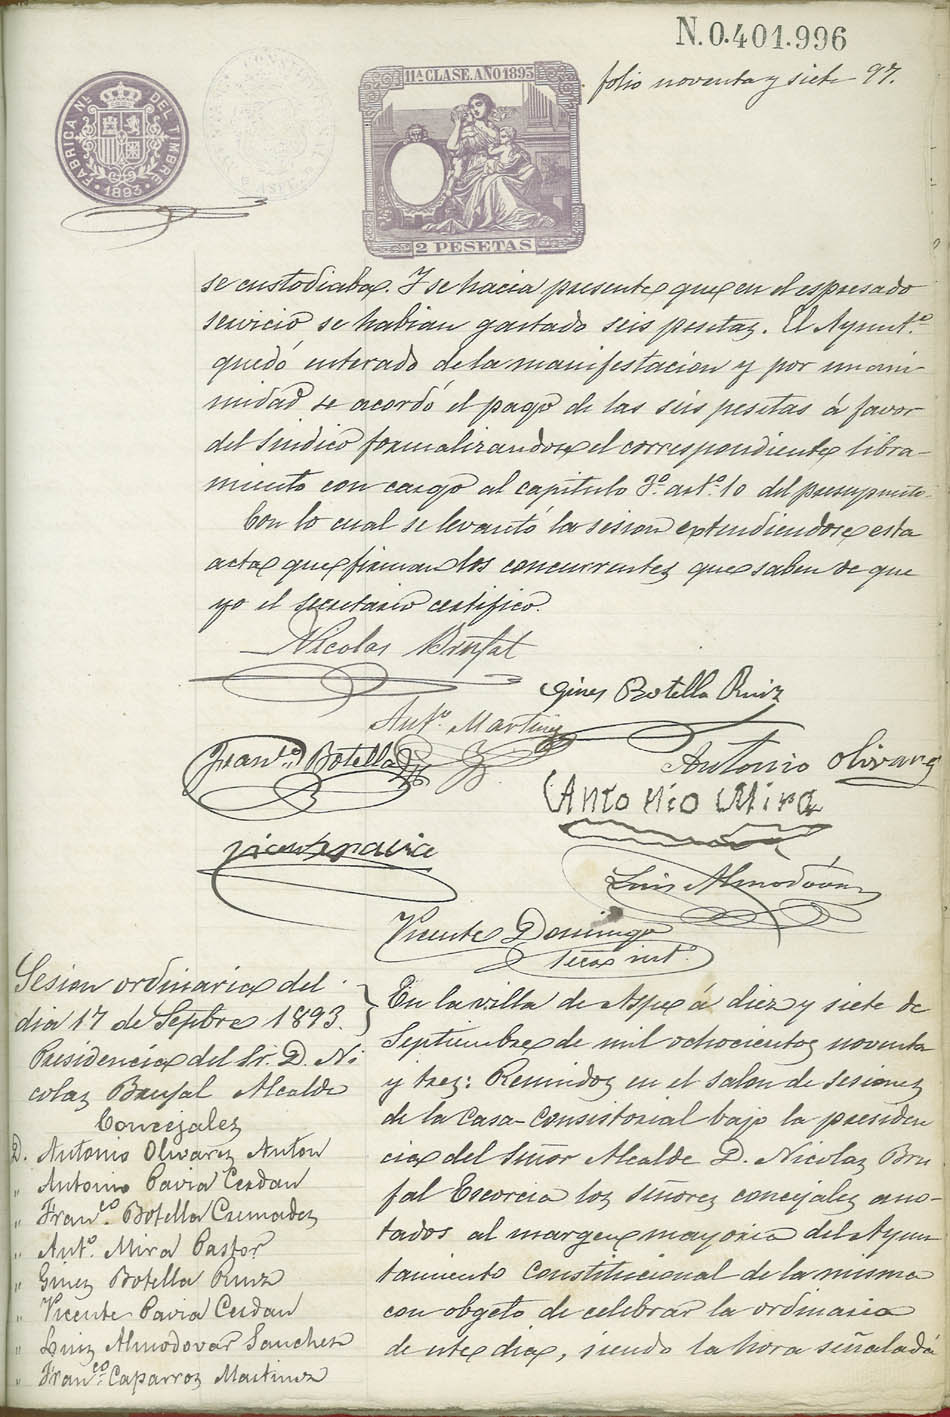 N.0.401.996
folio noventa y siete 97.
FÁBRICA Nl. DEL TIMBRE
1893
11ª CLASE. AÑO 1893
2 PESETAS
se custodiaba. Y se hacia presente que en el espresado
servicio se habian gastado seis pesetas. El Ayunt.º
quedó enterado de la manifestacion y por unani-
midad se acordó el pago de las seis pesetas á favor
del Sindico formalizandose el correspondiente libra-
miento con cargo al capitulo 1º. art.º 10 del presupuesto.
Con lo cual se levantó la sesion extendiendose esta
acta que firman los concurrentes que saben de que
yo el secretario certifico.
Nicolas Brufal
Gines Botella Ruiz
Ant.º Martinez
Fran.co Botella
Antonio Olivares
Antonio Mira
Vicente Pavia
Luis Almodóvar
Vicente Domingo
Secret int.º
Sesion ordinaria del
dia 17 de Sepbre 1893.
Presidencia del Sr. D. Ni
colas Brufal Alcalde
Concejales
D. Antonio Olivares Anton
" Antonio Pavia Cerdan
" Fran.co Botella Cremades
" Ant.º Mira Pastor
" Gines Botella Ruiz
" Vicente Pavia Cerdan
" Luis Almodovar Sanchez
" Fran.co Caparros Martinez
En la villa de Aspe á diez y siete de
Septiembre de mil ochocientos noventa
y tres: Reunidos en el salon de sesiones
de la Casa-Consistorial bajo la presiden
cia del Señor Alcalde D. Nicolas Bru
fal Escorcia los señores concejales ano-
tados al margen mayoria del Ayun
tamiento Constitucional de la misma
con obgeto de celebrar la ordinaria
de este dia, siendo la hora señalada